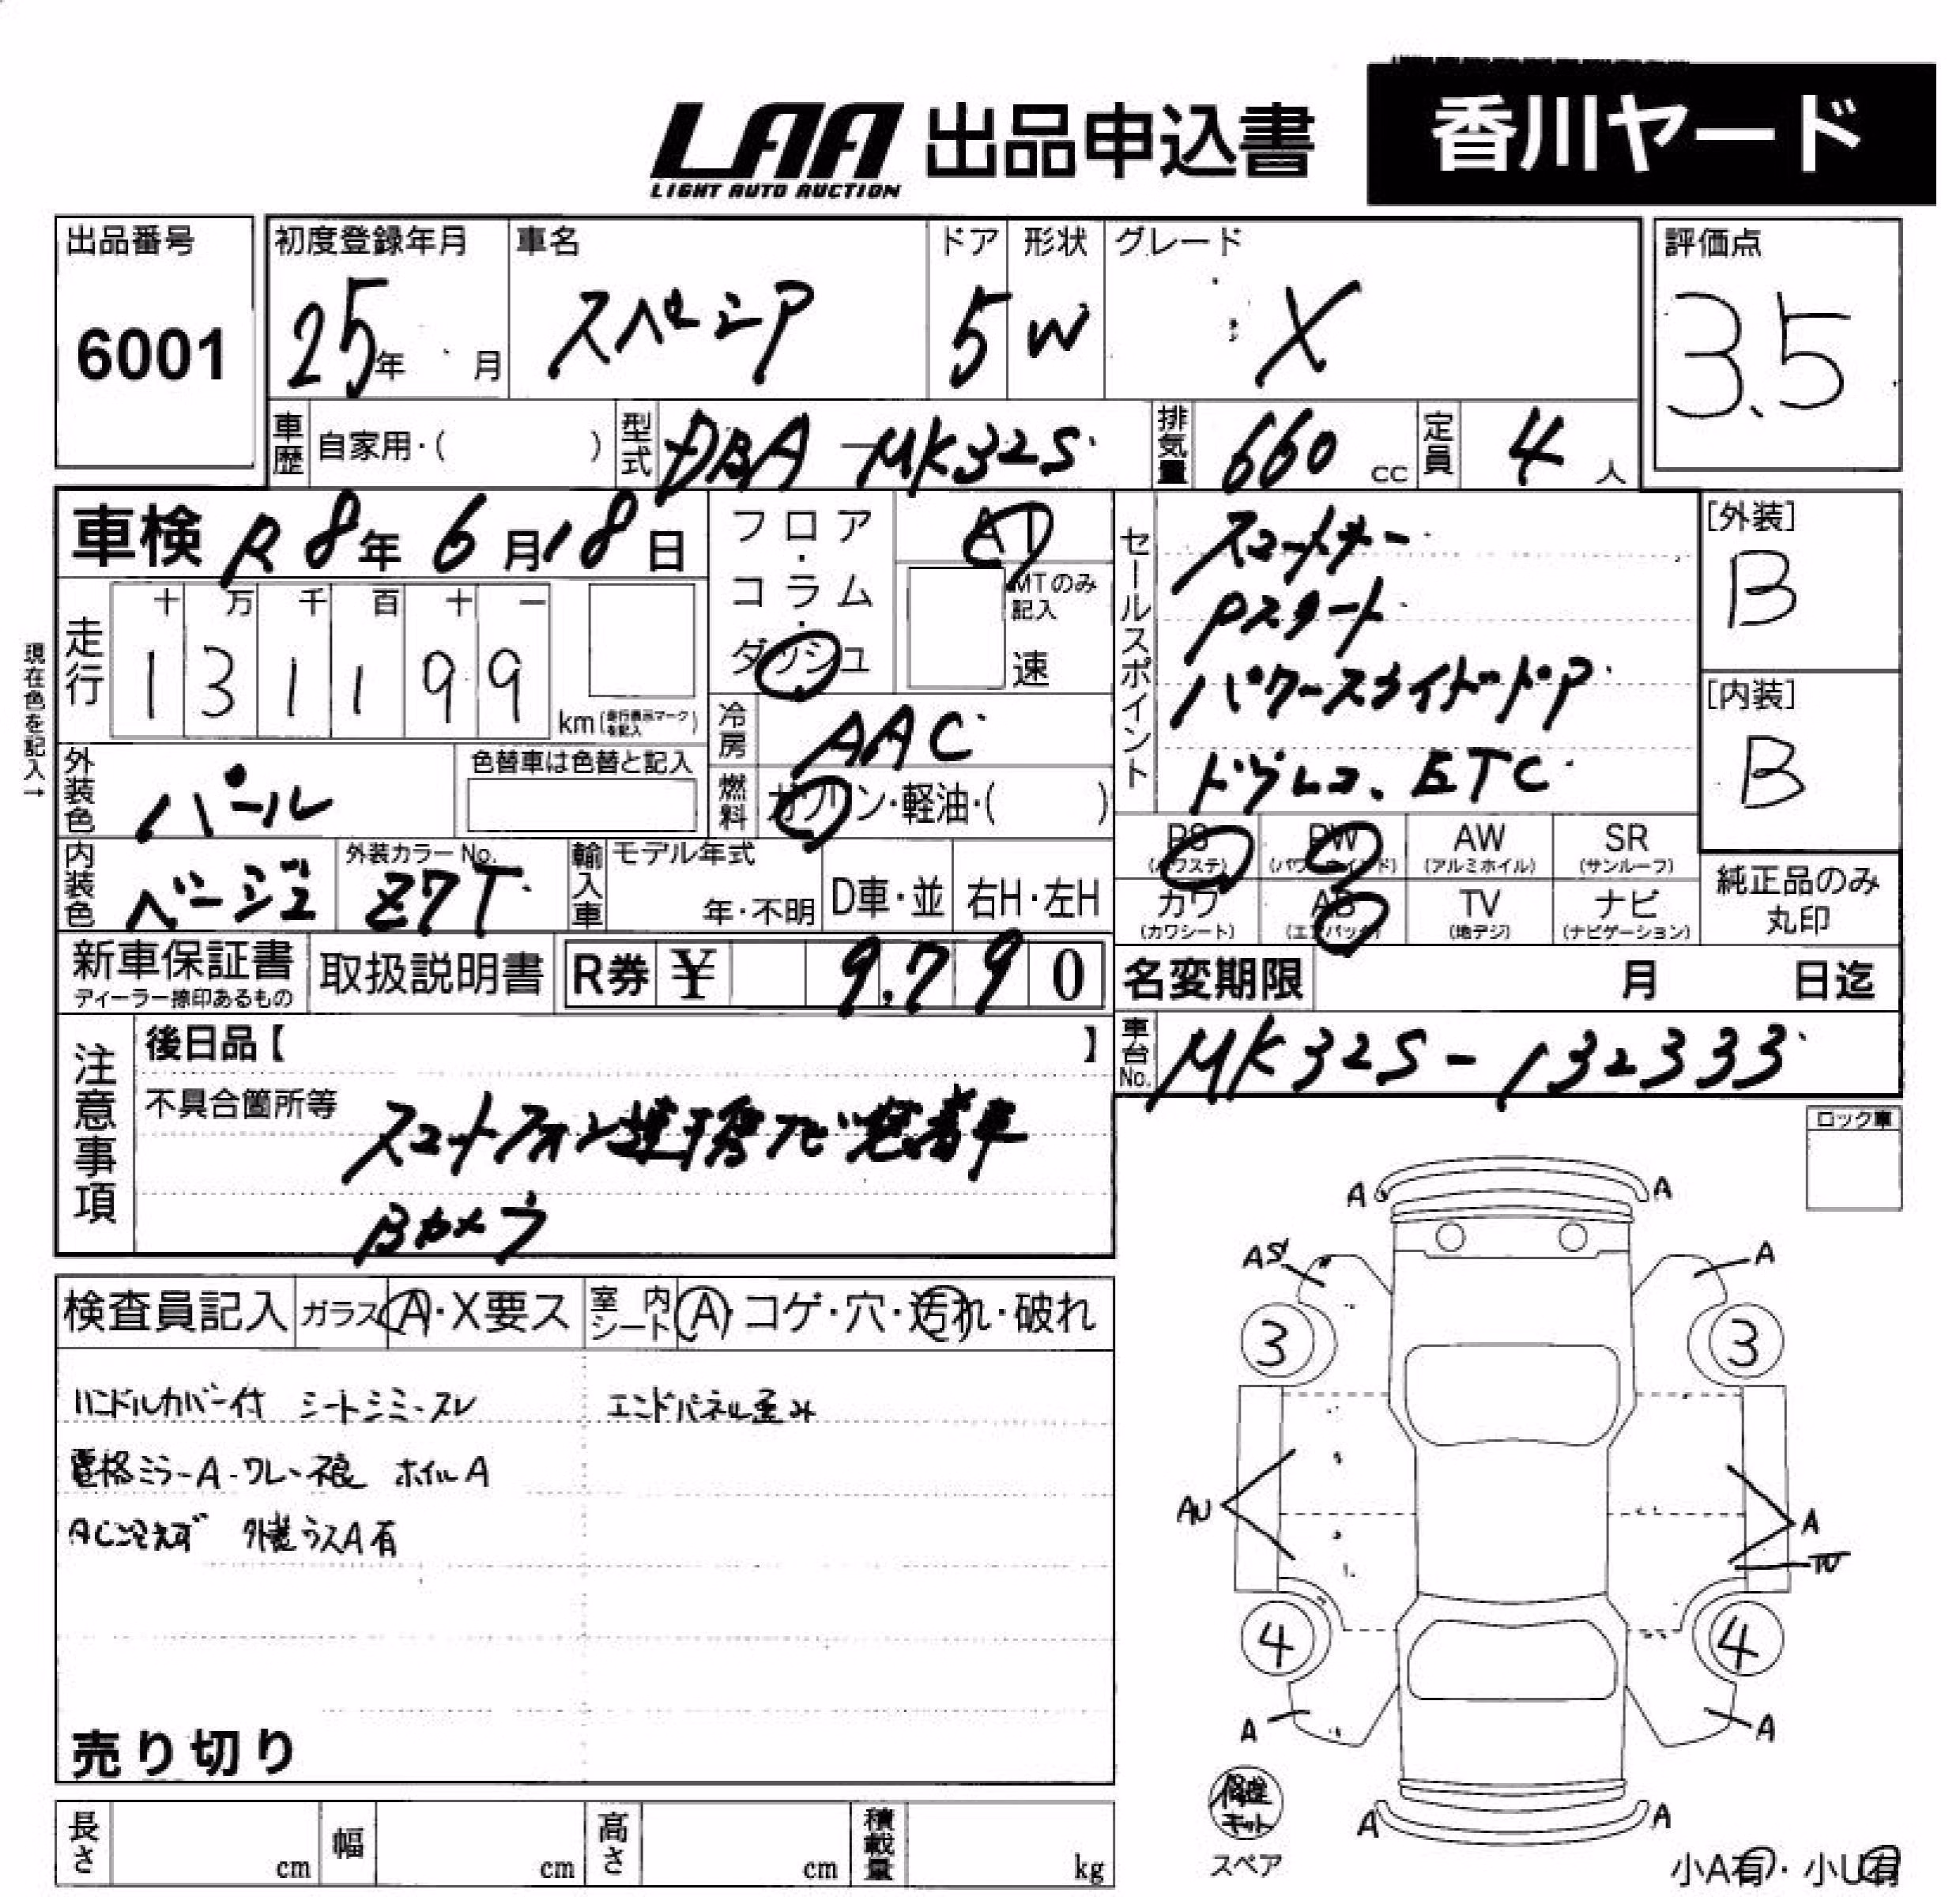 LAA 出品申込書 香川ヤード
LIGHT AUTO AUCTION
出品番号
6001
初度登録年月
25年 月
車名
スペーシア
ドア
5
形状
W
グレード
X
評価点
3.5
車歴 自家用・( )
型式 DBA-MK32S
排気量 660 cc
定員 4 人
車検 R8年6月18日
フロア・コラム・ダッシュ
AT
MTのみ記入
速
現在色を記入→
走行
十 万 千 百 十 一
1 3 1 1 9 9
km(走行表示マークを記入)
冷房 AAC
燃料 ガソリン・軽油・( )
外装色 パール
色替車は色替と記入
内装色 ベージュ
外装カラーNo. Z7T
輸入車 モデル年式
年・不明
D車・並
右H・左H
セールスポイント
スマートキー
Pスタート
パワースライドドア
ドラレコ、ETC
[外装]
B
[内装]
B
PS (パワステ)
PW (パワーウインド)
AW (アルミホイル)
SR (サンルーフ)
カワ (カワシート)
AB (エアバック)
TV (地デジ)
ナビ (ナビゲーション)
純正品のみ丸印
新車保証書
ディーラー捺印あるもの
取扱説明書
R券 ¥ 9,790
名変期限 月 日迄
車台No. MK32S-132333
注意事項
後日品【 】
不具合箇所等
スマートフォン連携ナビ装着車
Bカメラ
ロック車
検査員記入
ガラス A・X要ス
室内シート A・コゲ・穴・汚れ・破れ
ハンドルカバー付 シートシミ・スレ
エンドパネル歪み
電格ミラーA・ワレ・不良 ホイルA
AC冷えず 外装ラスA有
売り切り
長さ cm
幅 cm
高さ cm
積載量 kg
A A
A
3 3
AU
A
4 4
A A
修理キット
スペア
A A
小A有・小U有